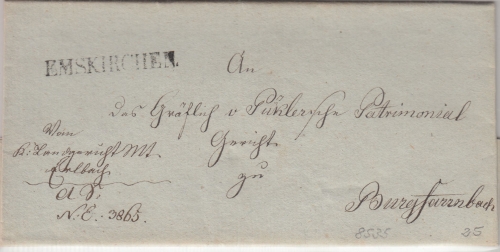 EMSKIRCHEN
An
das Gräflich v Püklersche Patrimonial
Gericht
zu
Burgfarrnbach
Vom
K: Landgericht Mt
Erlbach
N. E.: 3865.
8535
25